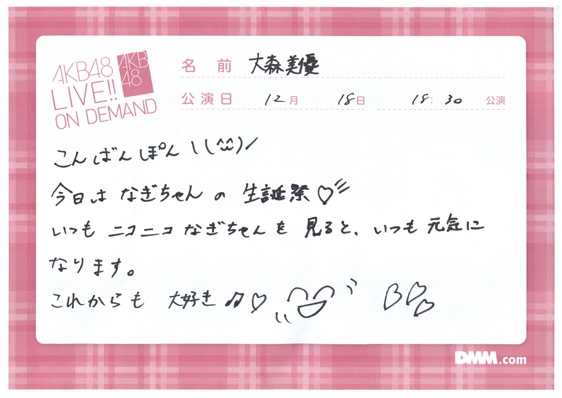 AKB48
LIVE!!
ON DEMAND
AKB
48
名前 大森美優
公演日 12月 18日 18:30 公演
こんばんぽん\(^^)/
今日は なぎちゃんの 生誕祭♡
いつも ニコニコ なぎちゃんを 見ると、いつも 元気に
なります。
これからも 大好き♫♡
DMM.com